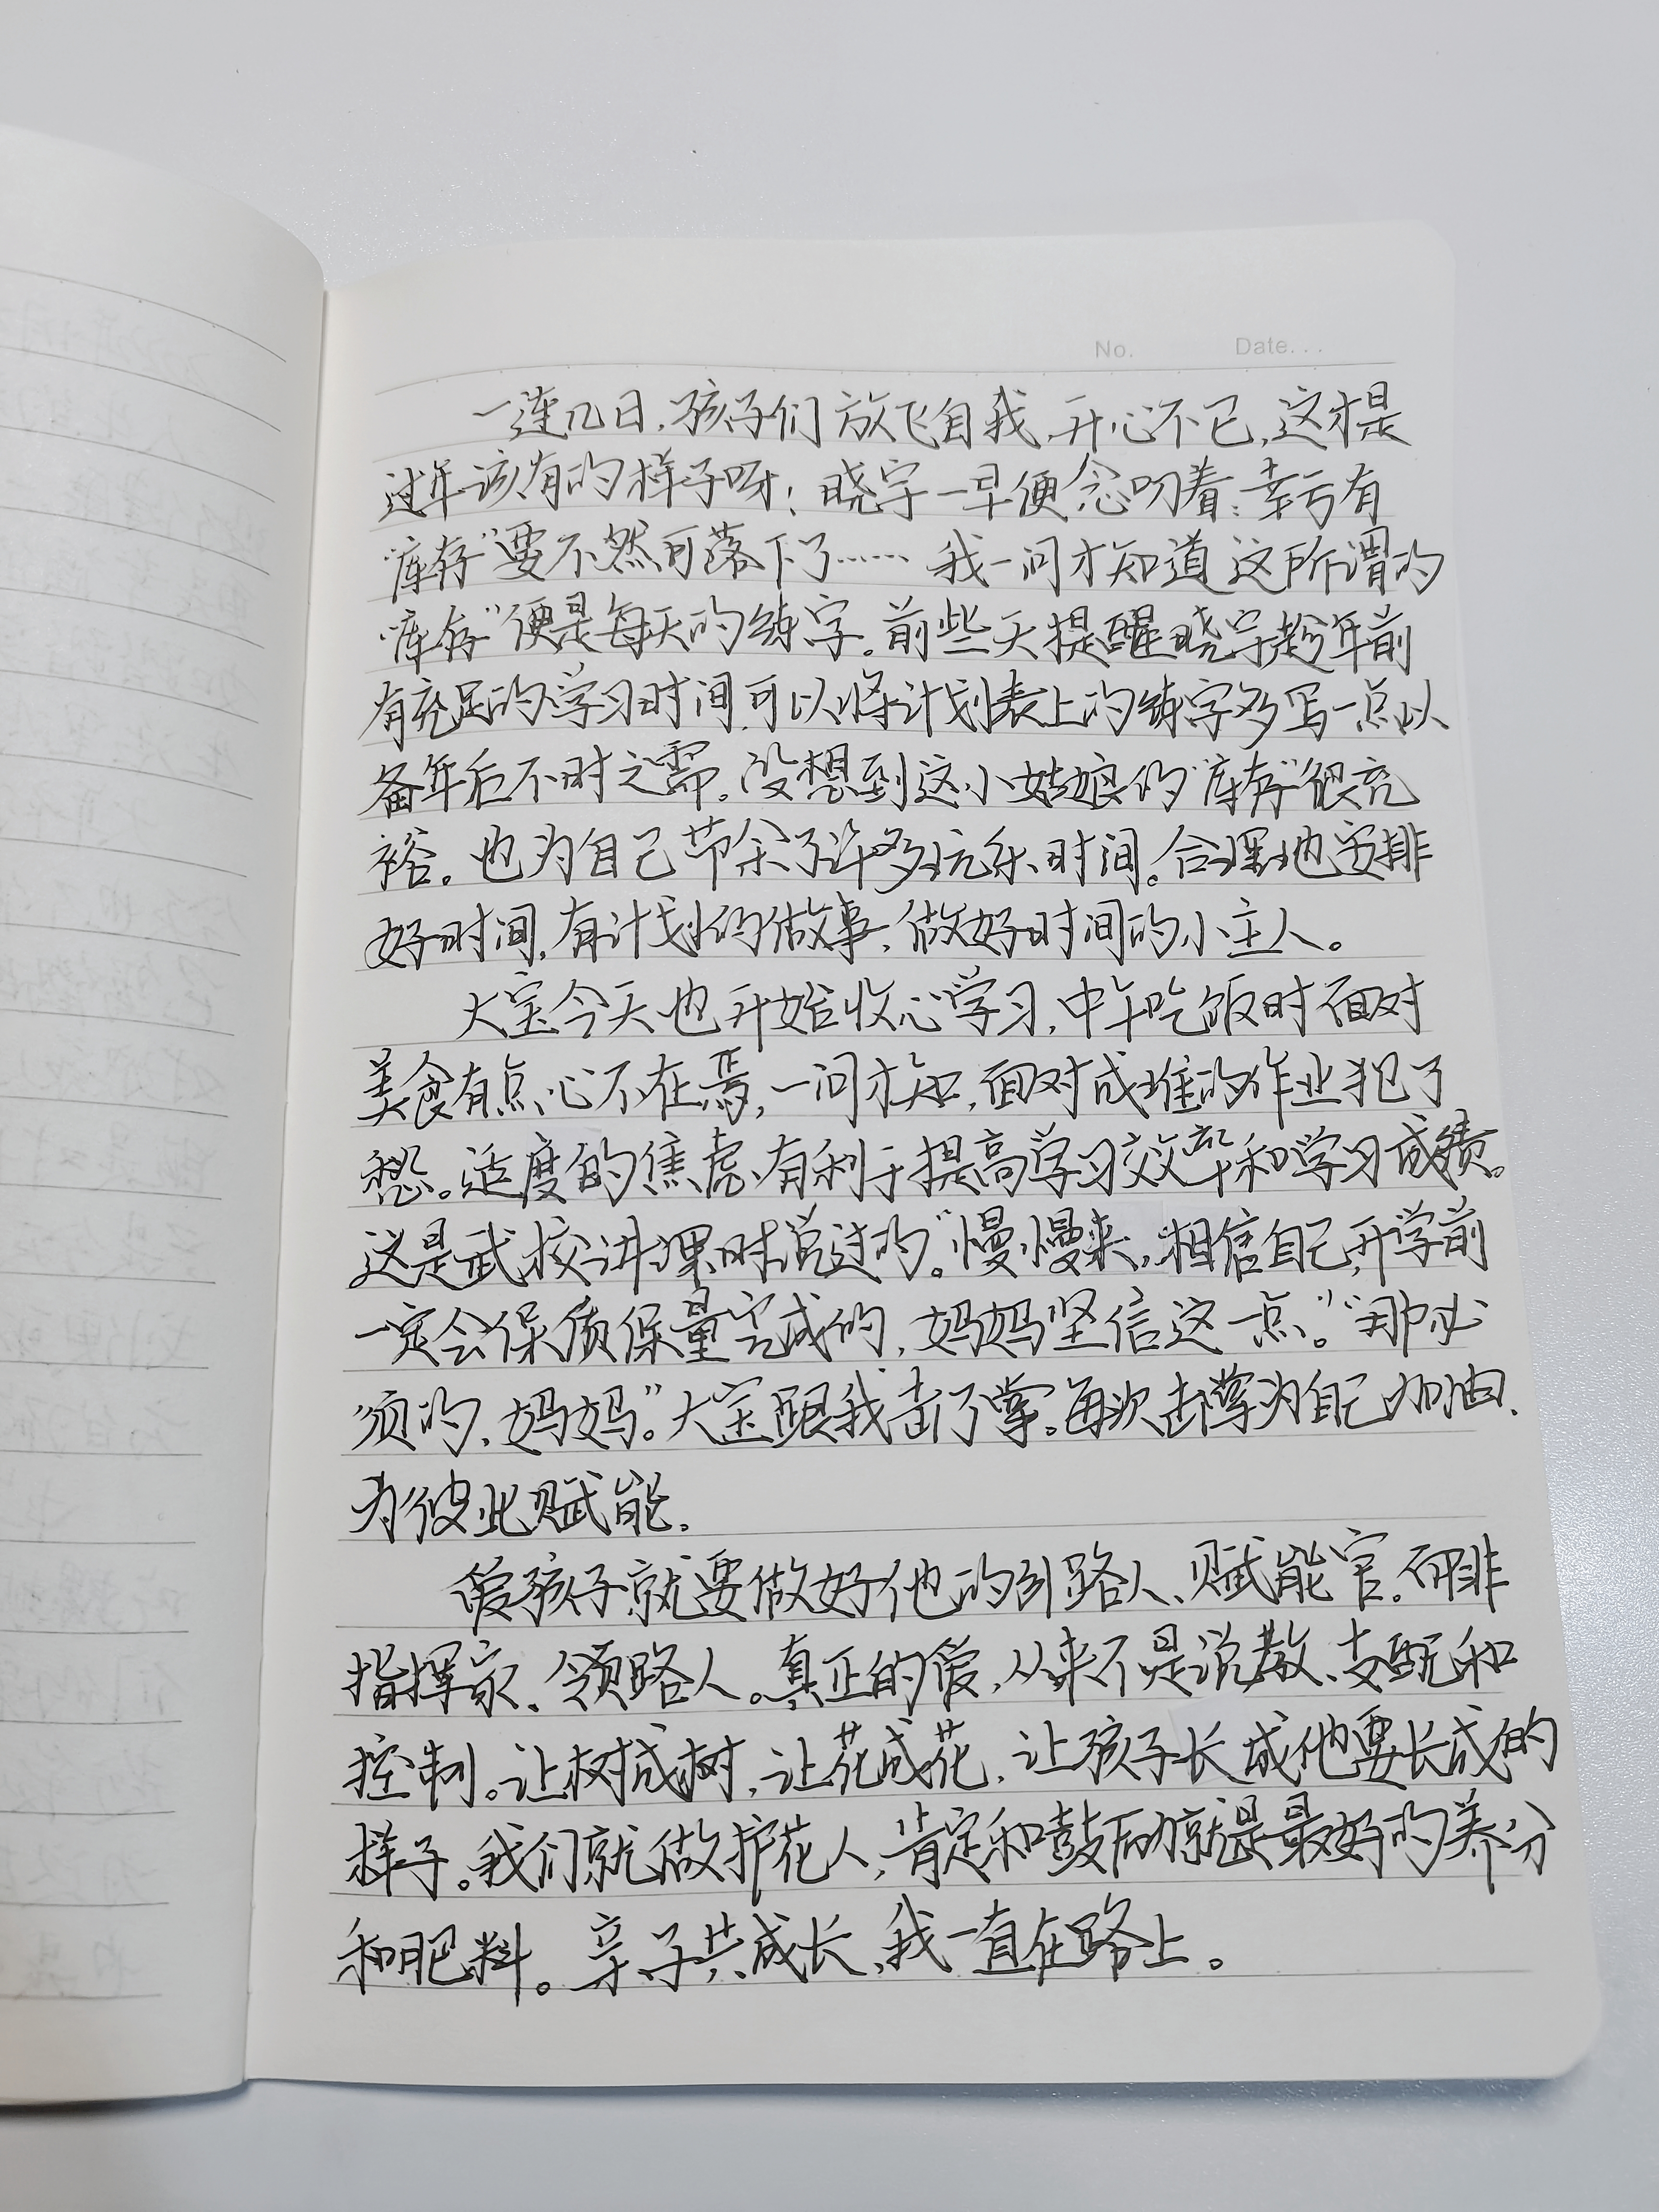 No. Date...
一连几日,孩子们放飞自我,开心不已,这才是
过年该有的样子呀!晓宇一早便念叨着:幸亏有
"库存"要不然可落下了……我一问才知道这所谓的
"库存"便是每天的练字。前些天提醒晓宇趁年前
有充足的学习时间可以将计划表上的练字多写一点以
备年后不时之需。没想到这小姑娘的"库存"很充
裕。也为自己节余了许多玩乐时间。合理地安排
好时间,有计划的做事,做好时间的小主人。
大宝今天也开始收心学习,中午吃饭时面对
美食有点心不在焉,一问才知,面对成堆的作业犯了
愁。适度的焦虑、有利于提高学习效率和学习成绩。
这是武校讲课时说过的。"慢慢来,相信自己,开学前
一定会保质保量完成的,妈妈坚信这一点。""那必
须的,妈妈。"大宝跟我击了掌。每次击掌为自己加油、
为彼此赋能。
爱孩子就要做好他的引路人、赋能官。而非
指挥家、领路人。真正的爱,从来不是说教、支配和
控制。让树成树,让花成花,让孩子长成他要长成的
样子。我们就做护花人,肯定和鼓励就是最好的养分
和肥料。亲子共成长,我一直在路上。